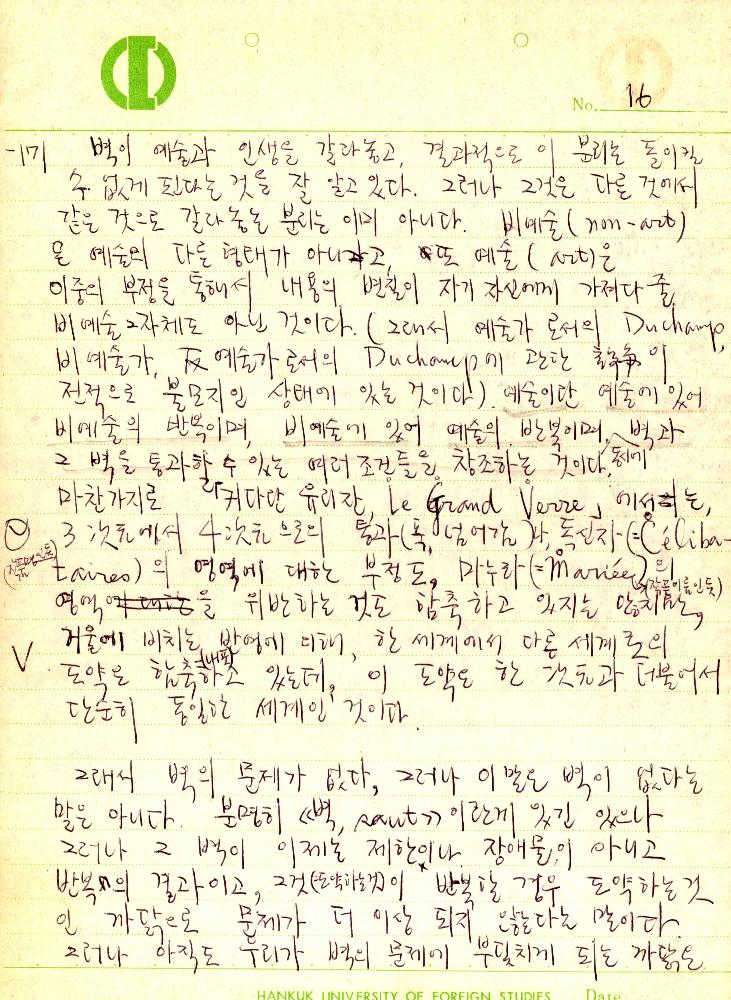 No. 16
-17] 벽이 예술과 인생을 갈라놓고, 결과적으로 이 분리는 돌이킬
수 없게 된다는 것을 잘 알고 있다. 그러나 그것은 다른 것에서
같은 것으로 갈라놓는 분리는 이미 아니다. 비예술(non-art)
은 예술의 다른 형태가 아니고, 또 예술(art)은
이중의 부정을 통해서 내용의 변칠이 자기 자신에게 가져다 줄
비예술 그 자체도 아닌 것이다. (그래서 예술가로서의 Duchamp,
비예술가, 反예술가로서의 Duchamp에 관한 論争이
전적으로 불모지인 상태에 있는 것이다). 예술이란 예술에 있어
비예술의 반복이며, 비예술에 있어 예술의 반복이며, 벽과
그 벽을 통과할 수 있는 여러 조건들을 동시에 창조하는 것이다.
마찬가지로 「커다란 유리잔, Le Grand Verre」에서는,
3次元에서 4次元으로의 통과(즉, 넘어감)나, 독신자(=Céliba-
taires)의 영역에 대한 부정도, 마누라(=Mariée)의
(작품명인듯) (작품이름인듯)
영역을 위반하는 것도 함축하고 있지는 않지만,
거울에 비치는 반영에 의해, 한 세계에서 다른 세계로의
도약은 함축(내포)하고 있는데, 이 도약은 한 次元과 더불어서
단순히 동일한 세계인 것이다.
그래서 벽의 문제가 없다, 그러나 이 말은 벽이 없다는
말은 아니다. 분명히 «벽, saut» 이란게 있긴 있으나
그러나 그 벽이 이제는 제한이나 장애물이 아니고
반복의 결과이고, 그것(도약하는것)이 반복할 경우 도약하는 것
인 까닭으로 문제가 더 이상 되지 않는다는 말이다.
그러나 아직도 우리가 벽의 문제에 부딪치게 되는 까닭은
HANKUK UNIVERSITY OF FOREIGN STUDIES Date